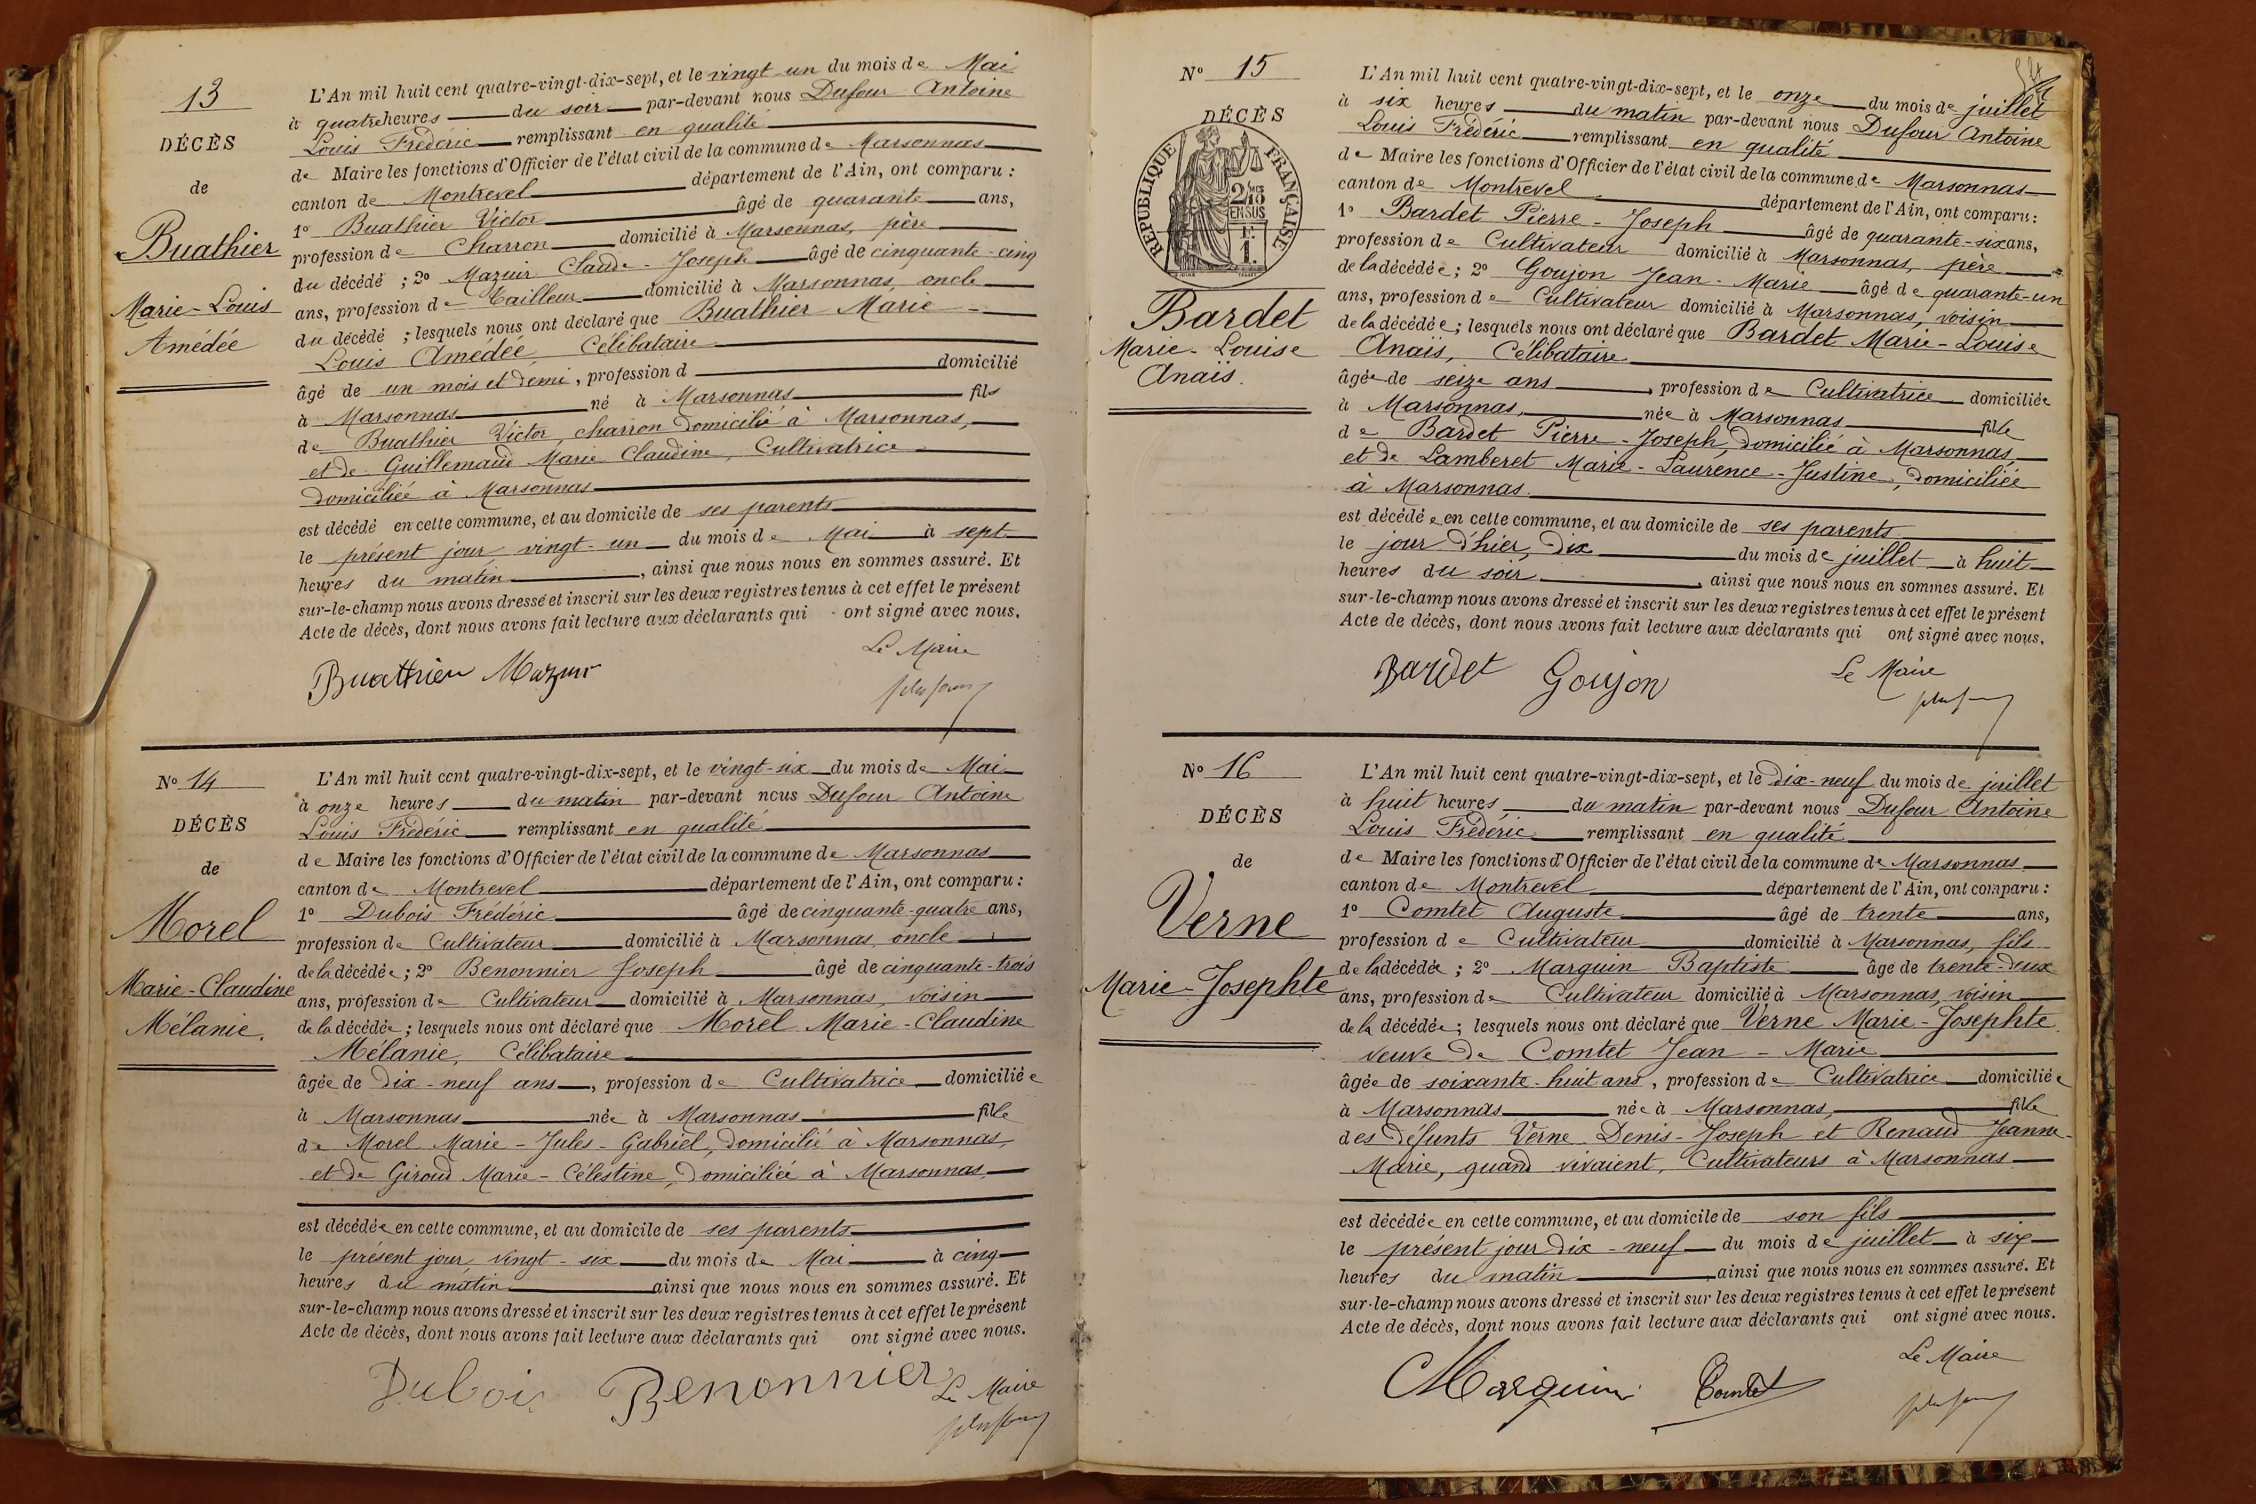 13
DÉCÈS
de
Buathier
Marie-Louis
Amédée
L'An mil huit cent quatre-vingt-dix-sept, et le vingt-un du mois de Mai
à quatre heures du soir par-devant nous Dufour Antoine
Louis Frédéric remplissant en qualité
de Maire les fonctions d'Officier de l'état civil de la commune de Marsonnas
canton de Montrevel département de l'Ain, ont comparu :
1º Buathier Victor âgé de quarante ans,
profession de Charron domicilié à Marsonnas, père
du décédé ; 2º Mazuir Claude-Joseph âgé de cinquante-cinq
ans, profession de Tailleur domicilié à Marsonnas, oncle
du décédé ; lesquels nous ont déclaré que Buathier Marie-
Louis Amédée, Célibataire
âgé de un mois et demi, profession d domicilié
à Marsonnas né à Marsonnas fils
de Buathier Victor, charron domicilié à Marsonnas,
et de Guillemaud Marie Claudine, Cultivatrice
domiciliée à Marsonnas
est décédé en cette commune, et au domicile de ses parents
le présent jour vingt-un du mois de Mai à sept
heures du matin, ainsi que nous nous en sommes assuré. Et
sur-le-champ nous avons dressé et inscrit sur les deux registres tenus à cet effet le présent
Acte de décès, dont nous avons fait lecture aux déclarants qui ont signé avec nous.
Le Maire
Buathier Mazuir
Nº 14
DÉCÈS
de
Morel
Marie-Claudine
Mélanie.
L'An mil huit cent quatre-vingt-dix-sept, et le vingt-six du mois de Mai
à onze heures du matin par-devant nous Dufour Antoine
Louis Frédéric remplissant en qualité
de Maire les fonctions d'Officier de l'état civil de la commune de Marsonnas
canton de Montrevel département de l'Ain, ont comparu :
1º Dubois Frédéric âgé de cinquante-quatre ans,
profession de Cultivateur domicilié à Marsonnas, oncle
de la décédée ; 2º Benonnier Joseph âgé de cinquante-trois
ans, profession de Cultivateur domicilié à Marsonnas, voisin
de la décédée ; lesquels nous ont déclaré que Morel Marie-Claudine
Mélanie, Célibataire
âgée de dix-neuf ans, profession de Cultivatrice domiciliée
à Marsonnas née à Marsonnas fille
de Morel Marie-Jules-Gabriel, domicilié à Marsonnas,
et de Giroud Marie-Célestine, domiciliée à Marsonnas.
est décédée en cette commune, et au domicile de ses parents
le présent jour, vingt-six du mois de Mai à cinq
heures du matin ainsi que nous nous en sommes assuré. Et
sur-le-champ nous avons dressé et inscrit sur les deux registres tenus à cet effet le présent
Acte de décès, dont nous avons fait lecture aux déclarants qui ont signé avec nous.
Dubois Benonnier Le Maire
Nº 15
DÉCÈS
RÉPUBLIQUE FRANÇAISE
Bardet
Marie-Louise
Anaïs.
L'An mil huit cent quatre-vingt-dix-sept, et le onze du mois de juillet
à six heures du matin par-devant nous Dufour Antoine
Louis Frédéric remplissant en qualité
de Maire les fonctions d'Officier de l'état civil de la commune de Marsonnas
canton de Montrevel département de l'Ain, ont comparu :
1º Bardet Pierre-Joseph âgé de quarante-six ans,
profession de Cultivateur domicilié à Marsonnas, père
de la décédée ; 2º Goujon Jean-Marie âgé de quarante-un
ans, profession de Cultivateur domicilié à Marsonnas, voisin
de la décédée ; lesquels nous ont déclaré que Bardet Marie-Louise
Anaïs, Célibataire
âgée de seize ans, profession de Cultivatrice domiciliée
à Marsonnas, née à Marsonnas fille
de Bardet Pierre-Joseph, domicilié à Marsonnas,
et de Lamberet Marie-Laurence-Justine, domiciliée
à Marsonnas.
est décédée en cette commune, et au domicile de ses parents
le jour d'hier, dix du mois de juillet à huit
heures du soir, ainsi que nous nous en sommes assuré. Et
sur-le-champ nous avons dressé et inscrit sur les deux registres tenus à cet effet le présent
Acte de décès, dont nous avons fait lecture aux déclarants qui ont signé avec nous.
Bardet Goujon Le Maire
Nº 16
DÉCÈS
de
Verne
Marie-Josephte
L'An mil huit cent quatre-vingt-dix-sept, et le dix-neuf du mois de juillet
à huit heures du matin par-devant nous Dufour Antoine
Louis Frédéric remplissant en qualité
de Maire les fonctions d'Officier de l'état civil de la commune de Marsonnas
canton de Montrevel département de l'Ain, ont comparu :
1º Comtet Auguste âgé de trente ans,
profession de Cultivateur domicilié à Marsonnas, fils
de la décédée ; 2º Marguin Baptiste âgé de trente-deux
ans, profession de Cultivateur domicilié à Marsonnas, voisin
de la décédée ; lesquels nous ont déclaré que Verne Marie-Josephte
veuve de Comtet Jean-Marie
âgée de soixante-huit ans, profession de Cultivatrice domiciliée
à Marsonnas née à Marsonnas, fille
des défunts Verne Denis-Joseph et Renaud Jeanne-
Marie, quand vivaient, Cultivateurs à Marsonnas
est décédée en cette commune, et au domicile de son fils
le présent jour dix-neuf du mois de juillet à six
heures du matin, ainsi que nous nous en sommes assuré. Et
sur-le-champ nous avons dressé et inscrit sur les deux registres tenus à cet effet le présent
Acte de décès, dont nous avons fait lecture aux déclarants qui ont signé avec nous.
Le Maire
Marguin Comtet